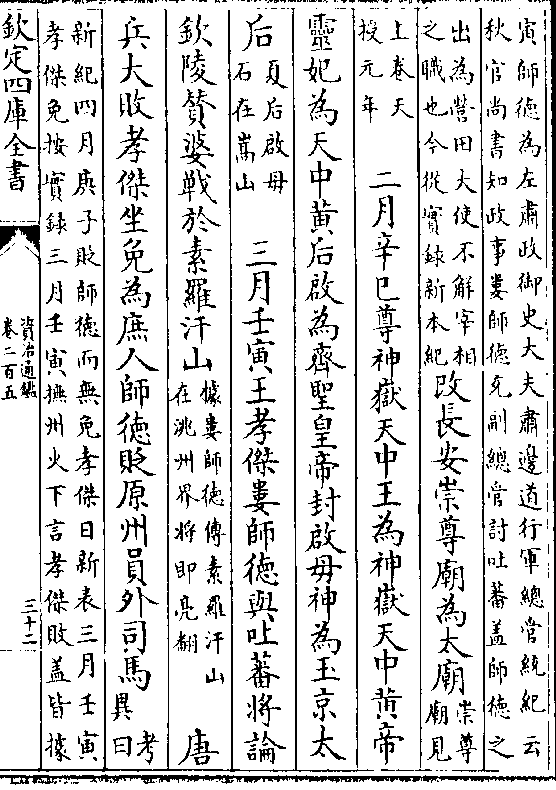 寅師德為左肅政御史大夫肅邊道行軍總管統紀云
秋官尚書知政事婁師德充副總管討吐蕃蓋師德之
出為營田大使不解宰相
之職也今從實録新本紀
改長安崇尊廟為太廟
崇尊
廟見
上卷天
授元年
二月辛巳尊神嶽天中王為神嶽天中黄帝
靈妃為天中黄后啟為齊聖皇帝封啟母神為玉京太
后
夏后啟母
石在嵩山
三月壬寅王孝傑婁師德與吐蕃將論
欽陵贊婆戰於素羅汗山
據婁師德傳素羅汗山
在洮州界將即亮翻
唐
兵大敗孝傑坐免為庶人師德貶原州員外司馬
考
異
曰
新紀四月庚子貶師德而無免孝傑日新表三月壬寅
孝傑免按實録三月壬寅撫州火下言孝傑敗蓋皆據
欽定四庫全書
資治通鑑
卷二百五
三十二